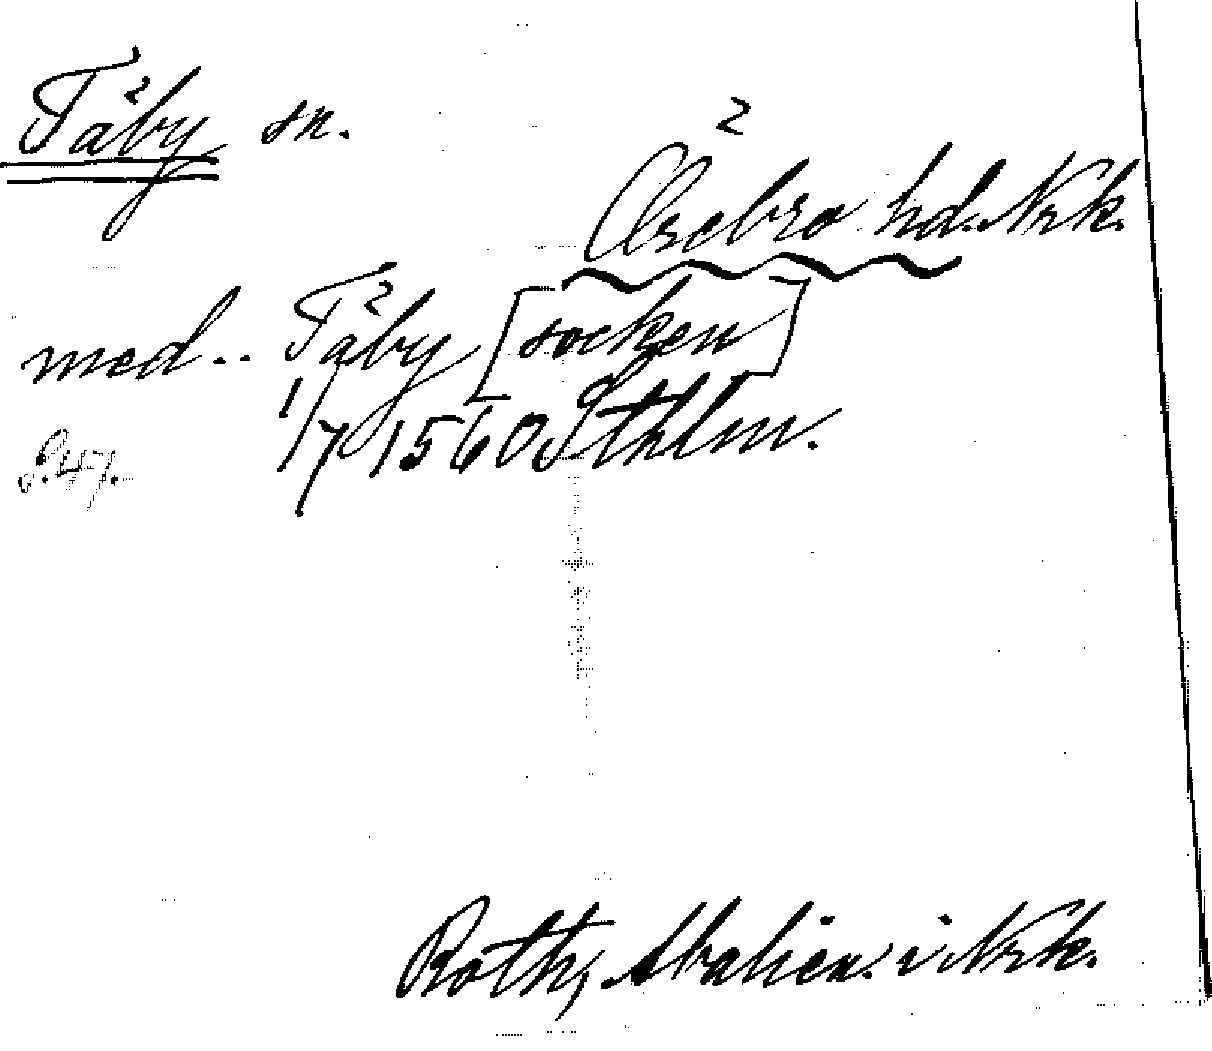 Täby sn.
Örebro hd. Nrk.
med.. Täby [socken]
1/7 1560 Sthlm.
S.47.
Roth, Abalien. i Nrk.